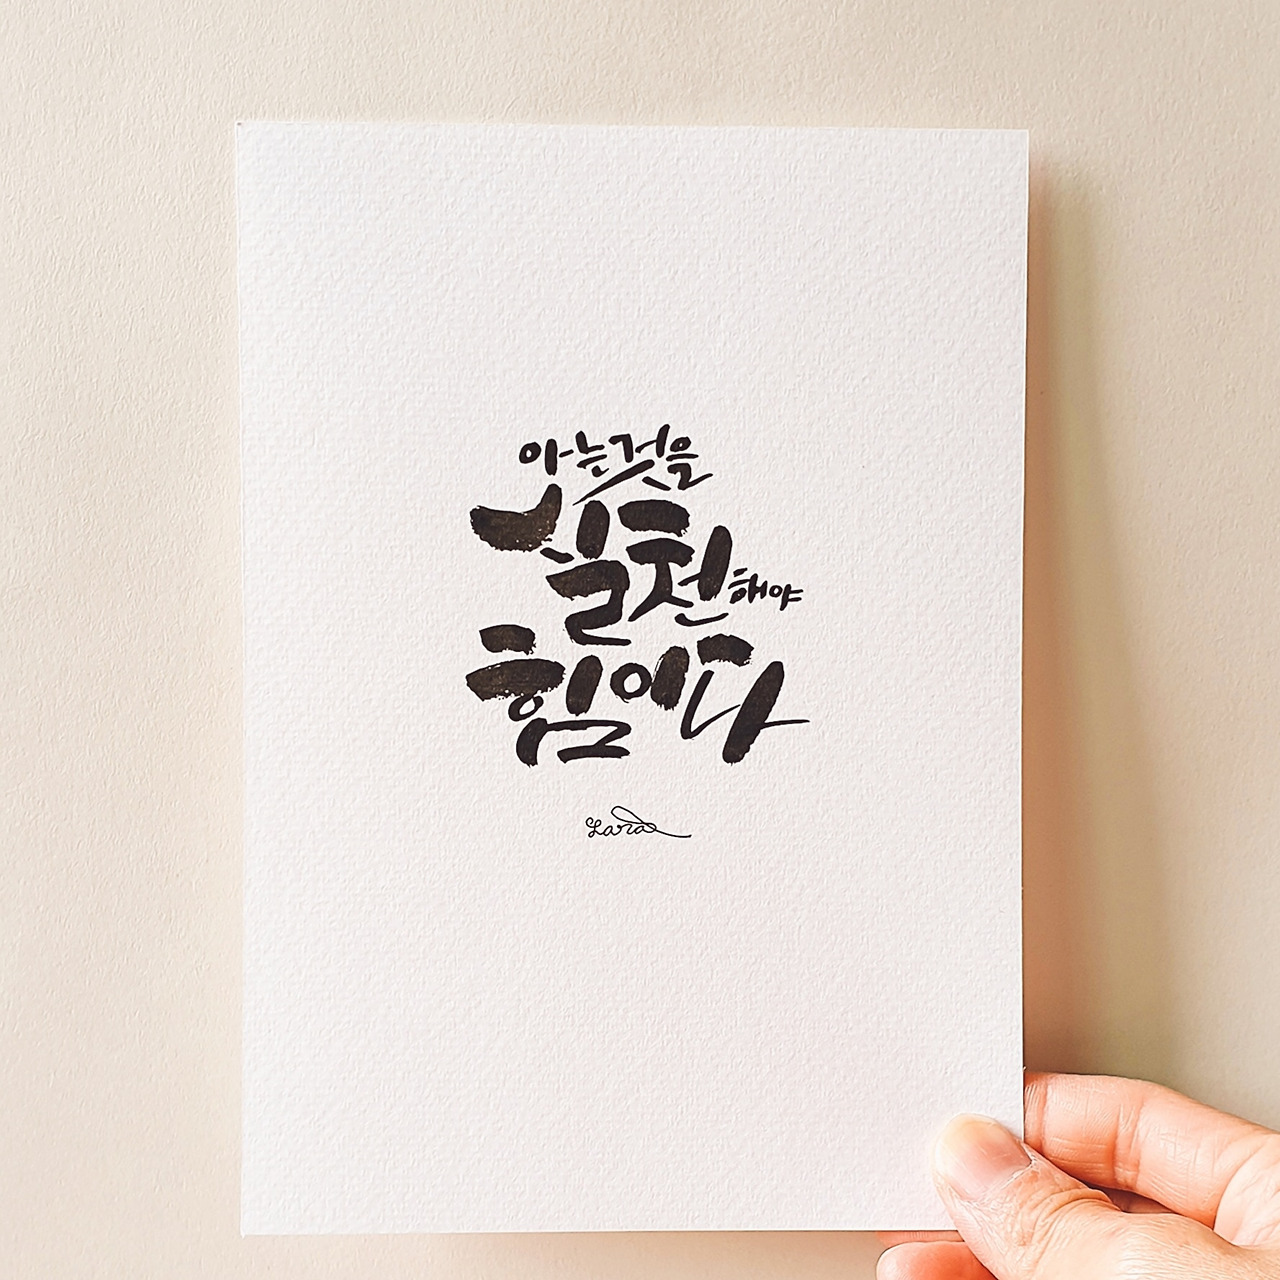 아는것을
실천해야
힘이다
Lara